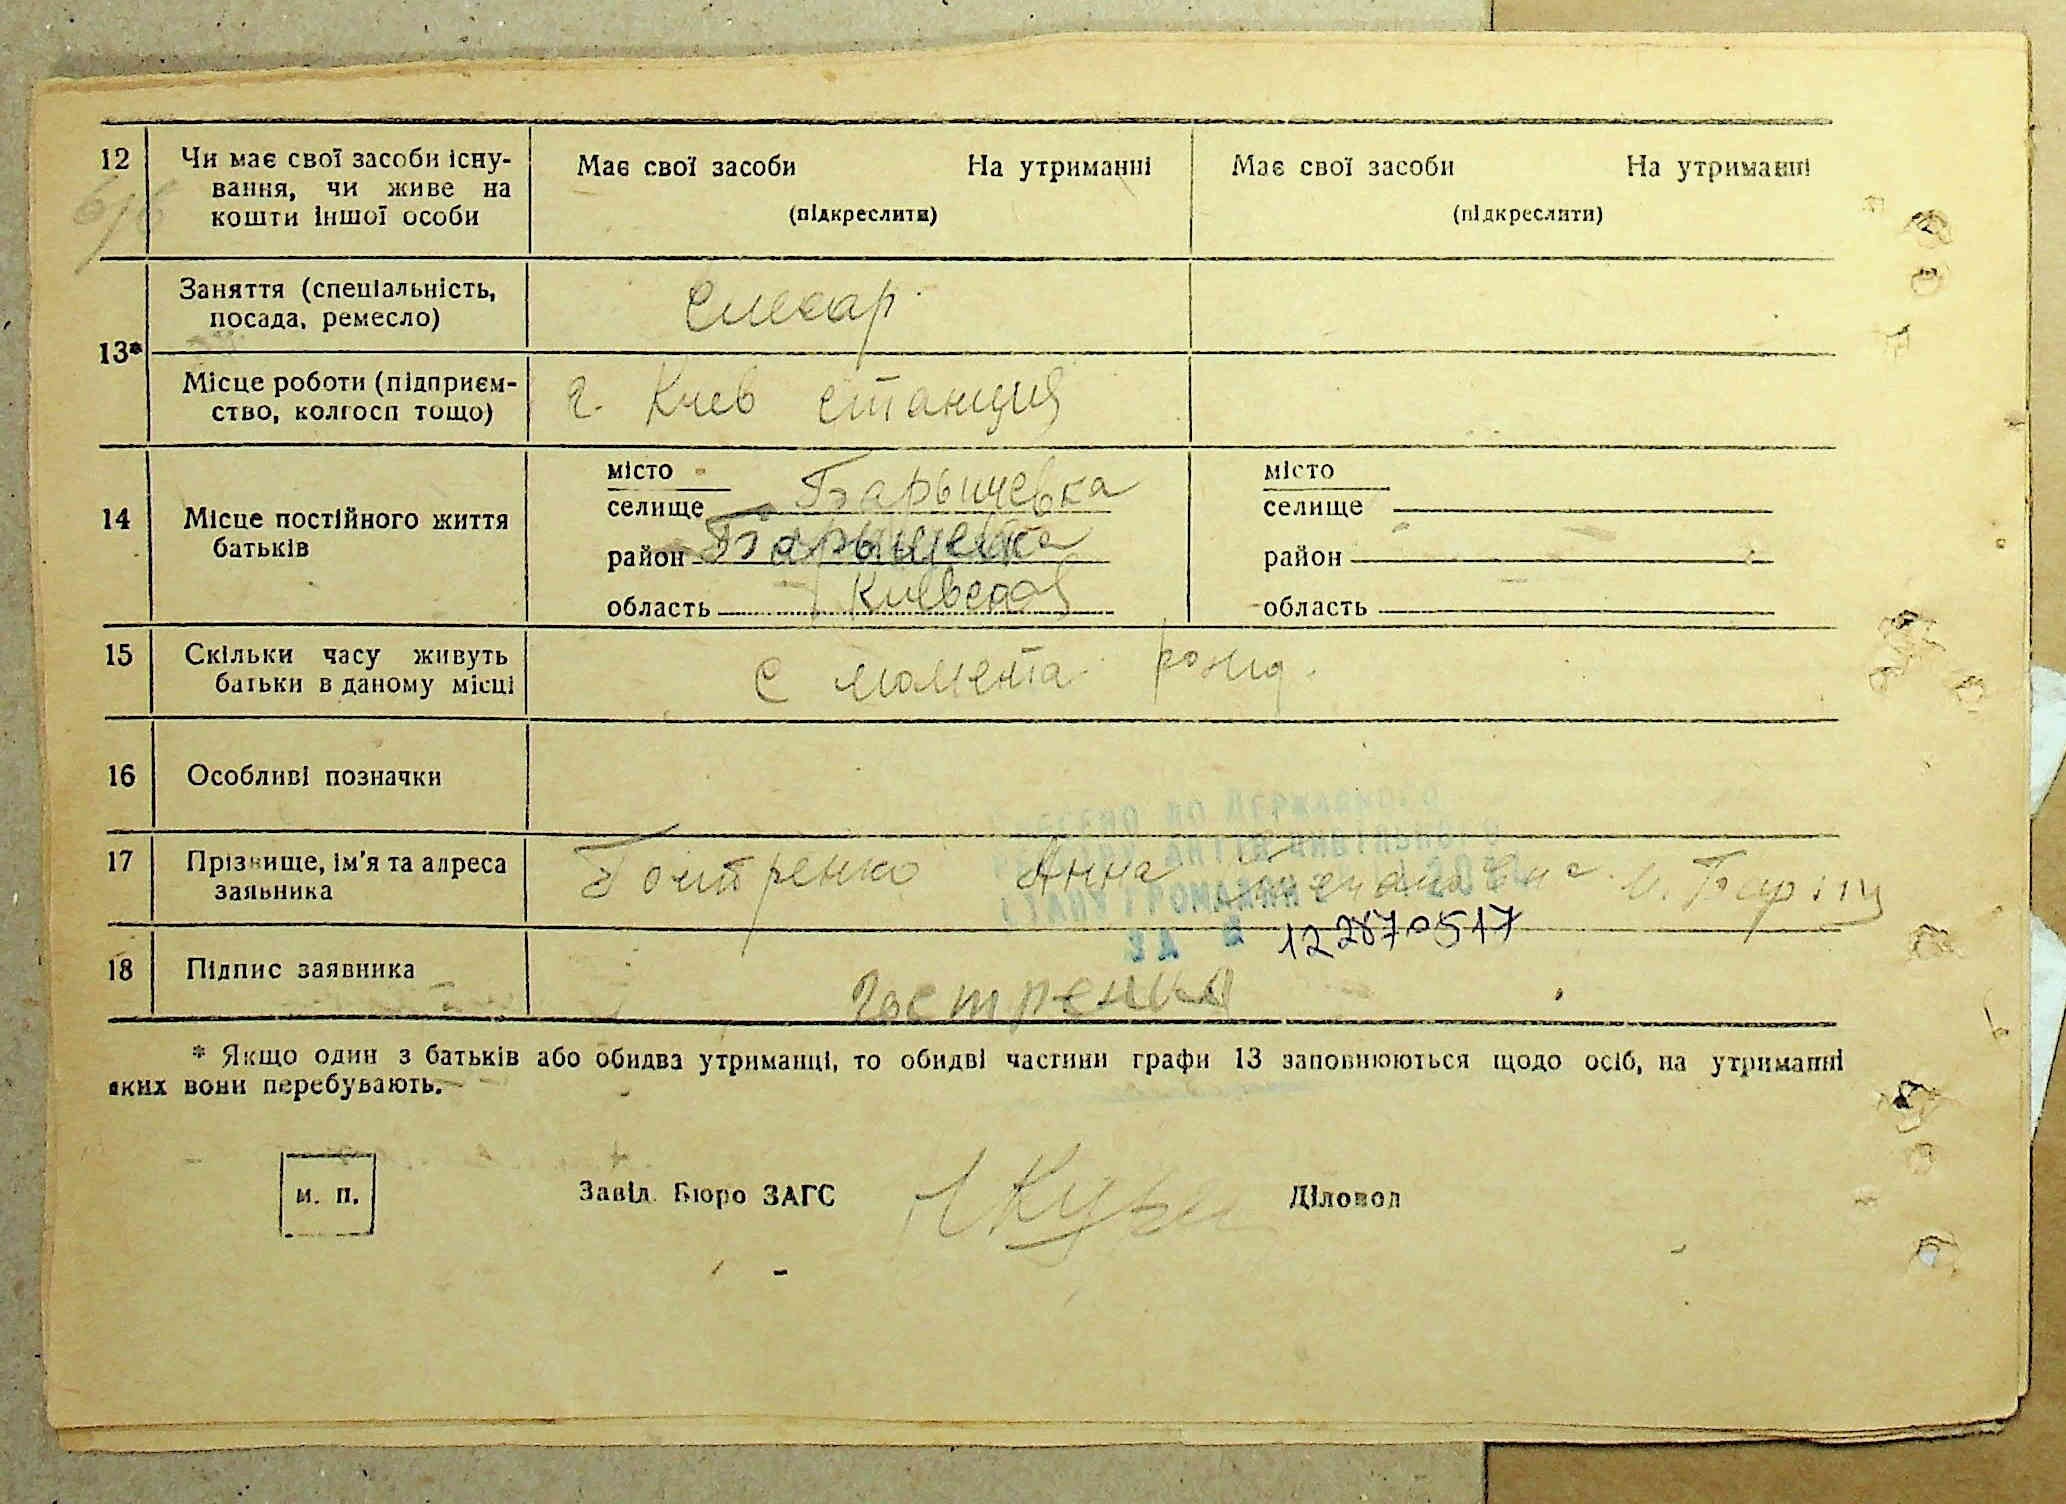 12 Чи має свої засоби існу-
вання, чи живе на
кошти іншої особи
Має свої засоби На утриманні
(підкреслити)
Має свої засоби На утриманні
(підкреслити)
6/6
13*
Заняття (спеціальність,
посада, ремесло)
Слесар
Місце роботи (підприєм-
ство, колгосп тощо)
г. Киев станция
14 Місце постійного життя
батьків
місто
селище Барышевка
район Барышевка
область Киевская
місто
селище
район
область
15 Скільки часу живуть
батьки в даному місці
с момента рожд.
16 Особливі позначки
17 Прізвище, ім'я та адреса
заявника
Гостренко Анна
122870517
18 Підпис заявника
* Якщо один з батьків або обидва утриманці, то обидві частини графи 13 заповнюються щодо осіб, на утриманні
яких вони перебувають.
м. п.
Завід. Бюро ЗАГС
Діловод